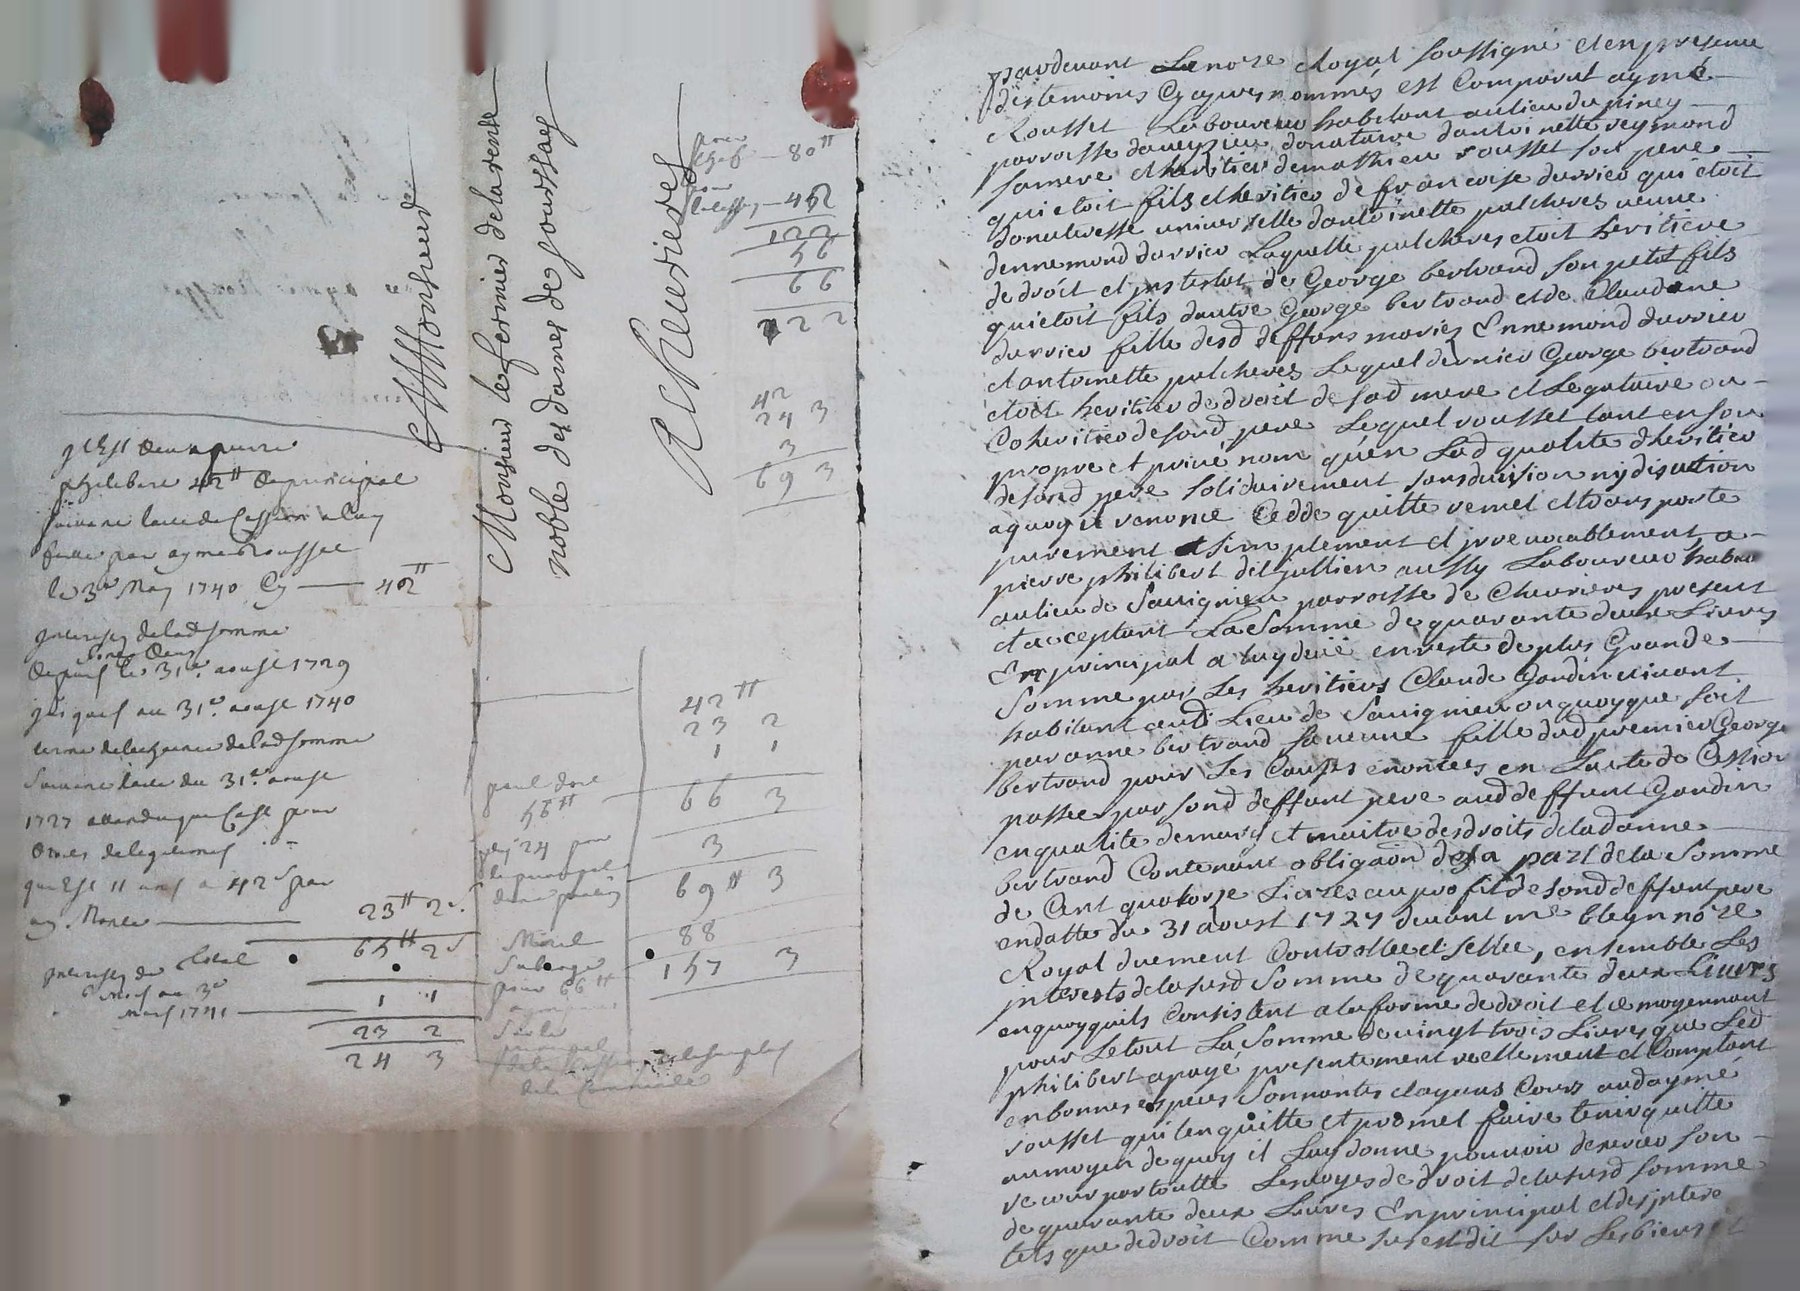 A Monsieur
Monsieur le fermier de la rente
noble des dames de Jourssay
A Chevrieres
pour
80 ᵗᵗ
42
122
56
66
122
42
24 3
3
69 3
Il est deu a pierre
philibert 42 ᵗᵗ de principal
suivant l'acte de Cession a luy
faitte par aymé Rousset
le 3ᵉ May 1740 Cy — 42 ᵗᵗ
Interests de lad somme
depuis le 31ᵉ aoust 1729
jusques au 31ᵉ aoust 1740
terme de lecheance de lad somme
Suivant lacte du 31ᵉ aoust
1727 attendu que Cest pour
droits de legitimes
qui Est 11 ans a 42 s par
an Monte — 23 ᵗᵗ 2 s
total 65 ᵗᵗ 2 s
Interests de
6 mois au 3ᵉ
Mars 1741 — 1 1
23 2
24 3
42 ᵗᵗ
23 2
1 1
66 3
3
69 ᵗᵗ 3
88
157 3
56 ᵗᵗ
pour 66 ᵗᵗ
Sur le
principal
de la Commande
pardevant Le no're Royal soussigné et en presence
des temoins Cy apres nommés est Comparut aymé
Rousset Laboureur habitant au lieu du piney
parroisse daveyzieu donataire dantoinette reymond
sa mere et heritier de mathieu rousset son pere
qui etoit fils et heritier de francoise durrieu qui etoit
donateresse universelle dantoinette palcheres veuve
dennemond durrieu Laquelle palcheres etoit heritiere
de droit et intestat de George bertrand son petit fils
qui etoit fils dautre George bertrand et de Claudine
durrieu fille desd deffuns mariés Ennemond durrieu
et antoinette palcheres Lequel dernier George bertrand
etoit heritier de droit de sad mere et Legataire ou
Coheritier de sond pere Lequel rousset tant en son
propre et privé nom qu'en Lad qualité d'heritier
de sond pere solidairement sans division ny discution
a quoy il renonce Cedde quitte remet et transporte
purement et simplement et irrevocablement a
pierre philibert dit jullien aussy Laboureur habitant
au lieu de Savignieu parroisse de Chevrieres present
et acceptant La Somme de quarante deux Livres
En principal a luy deüe en reste de plus Grande
Somme par Les heritiers Claude Gardin vivant
habitant aud Lieu de Savignieu ou quoyque soit
par anne bertrand sa veuve fille dud premier George
bertrand pour Les Causes enoncées en Lacte de Cession
passée par sond deffunt pere aud deffunt Gardin
en qualité de mary et maitre des droits de lad anne
bertrand Contenant obliga͠on de sa part de la Somme
de Cent quatorze Livres au profit de sond deffunt pere
en datte du 31 aoust 1727 devant me bleyn no're
Royal duement Controllée et sellée, ensemble Les
interests de la susd Somme de quarante deux Livres
en quoy quils Consistent a la forme de droit et ce moyennant
pour Le tout La Somme de vingt trois Livres que Led
philibert a payé presentement reellement et Comptant
en bonnes especes Sonnantes et ayans Cours aud aymé
rousset qui len quitte et promet faire tenir quitte
au moyen de quoy il Luy donne pouvoir de retirer son
recour par toutte Les voyes de droit de la susd somme
de quarante deux Livres En principal et des interests
tels que de droit Comme susest dit sur Les biens et